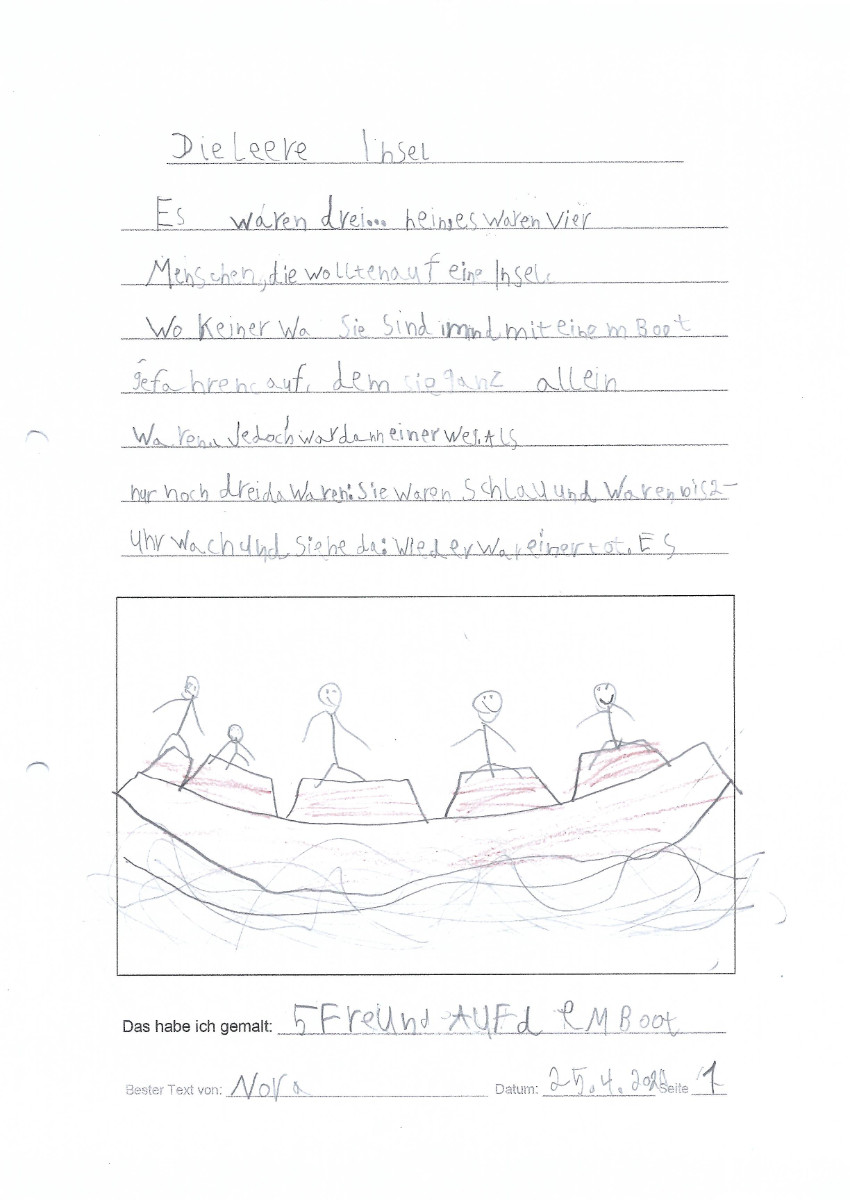 Die Leere Insel
Es waren drei... heines waren Vier
Menschen, die wollten auf eine Insel.
Wo Keiner Wa Sie Sind mit einem Boot
gefahren auf, dem sie ganz allein
Waren. Jedoch war dann einer weg. Als
nur noch drei da Waren: Sie waren Schlau und Waren bis 2-
Uhr Wach und Siehe da: Wieder War einer tot. Es
Das habe ich gemalt: 5 FreUnd AUF dEM Boot
Bester Text von: Nora
Datum: 25.4. Seite 1